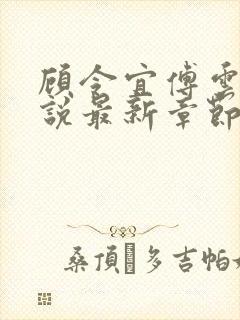 顾令宜傅雲
說最新章節
桑頂·多吉帕